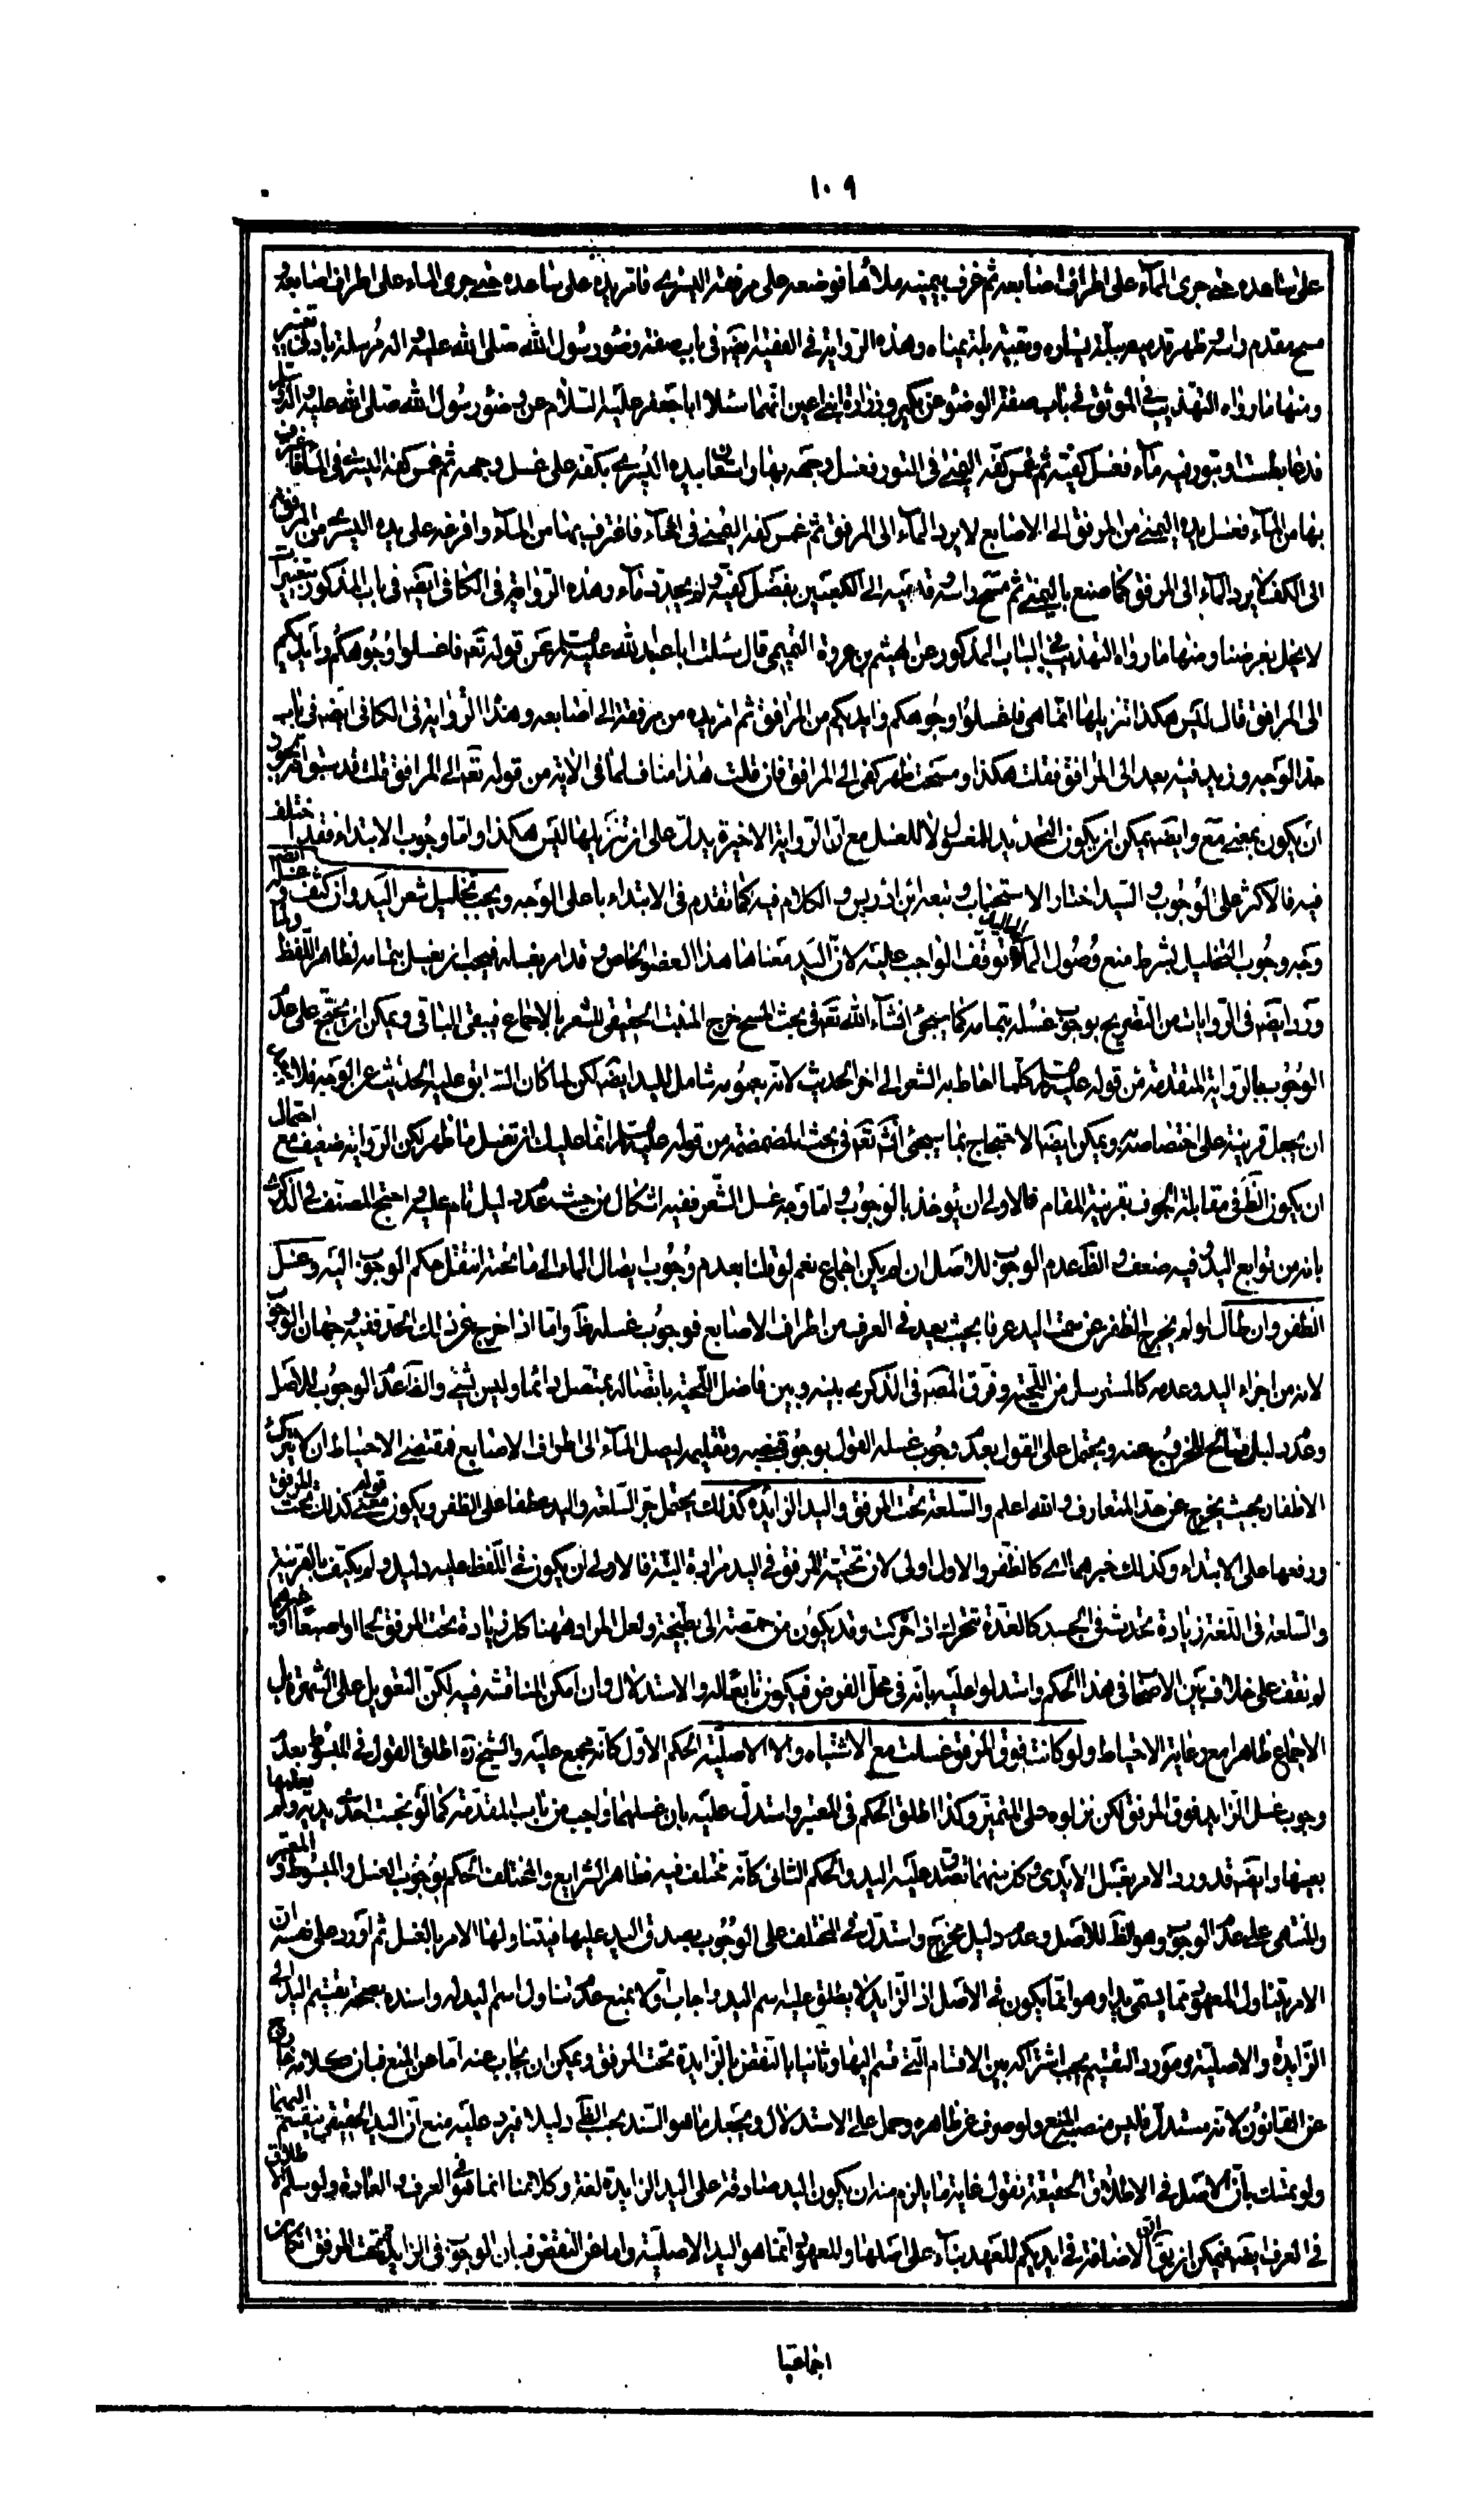 ١٠٩
على ساعده حتى جرى الماء على اطراف اصابعه ثم غرف بيمينه ملأها فوضعه على مرفقه اليسرى فامر يده على ساعده حتى جرى الماء على اطراف اصابعه
مسح مقدم راسه وظهر قدميه ببلة يساره وبقية بلة يمناه وهذه الرواية في الفقيه ايضا في باب صفة وضوء رسول الله صلى الله عليه واله مرسلة بادنى تغيير
ومنها ما رواه التهذيب في الموثق في باب صفة الوضوء عن بكير وزرارة ابني اعين انهما سئلا ابا جعفر عليه السلام عن وضوء رسول الله صلى الله عليه واله
فدعا بطست او بتور فيه ماء فغسل كفيه ثم غمس كفه اليمنى في التور فغسل وجهه بها واستعان بيده اليسرى بكفه على غسل وجهه ثم غمس كفه اليسرى في الماء فاغترف
بها من الماء فغسل يده اليمنى من المرفق الى الاصابع لا يرد الماء الى المرفق ثم غمس كفه اليمنى في الماء فاغترف بها من الماء وافرغه على يده اليسرى من المرفق
الى الكف لا يرد الماء الى المرفق كما صنع باليمنى ثم مسح راسه وقدميه الى الكعبين بفضل كفيه ولم يجدد ماء وهذه الرواية في الكافي ايضه في باب المذكور بتغييرات
لا يخل بغرضنا ومنها ما رواه التهذيب في الباب المذكور عن الهيثم بن عروة التميمي قال سئلت ابا عبد الله عليه السلم عن قوله تعه فاغسلوا وجوهكم وايديكم
الى المرافق قال ليس هكذا تنزيلها انما هي فاغسلوا وجوهكم وايديكم من المرافق ثم امر يده من مرفقه الى اصابعه وهذه الرواية في الكافي ايضه في باب
حد الوجه وزيد فيه بعد الى المرافق فقلت هكذا ومسحت ظهر كفي الى المرافق فان قلت هذا مناف لما في الاية من قوله تعه الى المرافق قلت قد سبق
ان يكون بمعنى مع وايضه يمكن ان يكون التحديد للمغسول لا للغسل مع ان الرواية الاخيرة يدل على ان تنزيلها ليس هكذا واما وجوب الابتداء فقد اختلف
فيه فالاكثر على الوجوب والسيد اختار الاستحباب وتبعه ابن ادريس والكلام فيه كما تقدم في الابتداء باعلى الوجه ويجب تخليل شعر اليد وان كثف وغسله ايضه
وجه وجوب التخليل بشرط منع وصول الماء الى اليد توقف الواجب عليه لان اليد معناها هذا العضو الخاص وقد امر بغسله فيجب ان يغسل بتمامه لظاهر اللفظ ولما
ورد ايضه في الروايات من التصريح بوجوب غسله بتمامه كما سيجئ انشاء الله تعه في بحث المسح خرج المنبت الحقيقي للشعر بالاجماع فبقى الباقي ويمكن ان يحتج على عدم
الوجوب بالرواية المتقدمة من قوله عليه السلم كلما احاط به الشعر الى اخر الحديث لانه بعمومه شامل لليد ايضه لكن لما كان السابق عليه الحديث عن الوجه فلا
ان يجعل قرينة على اختصاصه ويمكن ايضه الاحتجاج بما سيجئ انش تعه في بحث المضمضة من قوله عليه السلم انما عليك ان تغسل ما ظهر لكن الرواية ضعيفة مع احتمال
ان يكون الظ في مقابلة الجوف بقرينة المقام فالاولى ان يؤخذ بالوجوب واما وجه غسل الشعر ففيه اشكال من حيث عدم دليل تام عليه واحتج المصنف في الذكرى
بانه من توابع اليد وفيه ضعف والظ عدم الوجوب للاصل ان لم يكن اجماع نعم لو قلنا بعدم وجوب ايصال الماء الى ما تحته انتقل حكم الوجوب اليه وغسل
الظفر وان طال او لم يخرج الظفر عن سمت اليد عرفا بحيث يعد في العرف من اطراف الاصابع فوجوب غسله ظ واما اذا خرج عن ذلك الحد ففيه وجهان الوجوب
لانه من اجزاء اليد وعدمه كالمسترسل من اللحية وفرق المصه في الذكرى بينه وبين فاضل اللحية باتصاله بمتصل دائما وليس بشئ والظ عدم الوجوب للاصل
وعدم دليل صالح للخروج عنه ويحتمل على القول بعدم وجوب غسله القول بوجوب قصه وتقليمه ليصل الماء الى اطراف الاصابع فمقتضى الاحتياط ان لا يترك
الاظفار بحيث يخرج عن حد المتعارف والله اعلم والسلعة تحت المرفق واليد الزائدة كذلك يحتمل جر السلعة واليد عطفا على الظفر ويكون معنى قوله كذلك تحت المرفق
ورفعها على الابتداء وكذلك خبرهما اي كالظفر والاول اولى لان تحتية المرفق في اليد مرادة البتة فالاولى ان يكون في اللفظ عليه دليل ولم يكتف بالقرينة
والسلعة في اللغة زيادة تحدث في الجسد كالغدة تتحرك اذا حركت وقد يكون من حمصة الى بطيخة ولعل المراد ههنا كل زيادة تحت المرفق لحما او اصبعا او غيرهما
لم نقف على خلاف بين الاصحاب في هذا الحكم واستدلوا عليه بانه في محل الفرض فيكون تابعا له والاستدلال وان امكن المناقشة فيه لكن التعويل على الشهرة بل
الاجماع ظاهرا مع رعاية الاحتياط ولو كانت فوق المرفق غسلت مع الاشتباه والا الاصلية الحكم الاول كانه مجمع عليه والشيخ ره اطلق القول في المبسوط بعدم
وجوب غسل الزايد فوق المرفق لكن نزلوه على المتميز وكذا اطلق الحكم في المعتبر واستدل عليه بان غسلهما واجب من باب المقدمة كما لو نجست احدى يديه ولم يعلمها
بعينها وايضه قد ورد الامر بغسل الايدي وكل منهما تصدق عليه اليد والحكم الثاني كانه مختلف فيه فظاهر الشرايع والمختلف الحكم بوجوب الغسل والمبسوط والمعتبر
والمنتهى على عدم الوجوب وهو الظ للاصل وعدم دليل مخرج واستدل في المختلف على الوجوب بصدق اليد عليها فيتناولها الامر بالغسل ثم اورد على نفسه ان
الامر يتناول المعهود مما يسمى يدا وهو انما يكون في الاصل اذ الزايد لا يطلق عليه اسم اليد واجاب اولا بمنع عدم تناول اسم اليد له واسنده بصحة تقسيم اليد الى
الزايدة والاصلية ومورد التقسيم يجب اشتراكه بين الاقسام التي قسم اليها وثانيا بالنقض بالزايدة تحت المرفق ويمكن ان يجاب عنه اما عن المنع فبان كلامه خارج
عن القانون لانه مستدل فليس منصبه المنع ولو صرف عن ظاهره وحمل على الاستدلال ويجعل ما هو السند بحسب الظ دليلا فيرد عليه منع ان اليد الحقيقي ينقسم اليهما
ولو تمسك بان الاصل في الاطلاق الحقيقة نقول غاية ما يلزم منه ان يكون اليد صادقة على اليد الزايدة لغة وكلامنا انما هو في العرف والعادة ولو سلم
في العرف ايضه فيمكن ان يق ان الاضافة في ايديكم للعهد بناء على اصلها والمعهود انما هو اليد الاصلية واما عن النقض فبان الوجوب في الزايدة تحت المرفق
اجماعيا